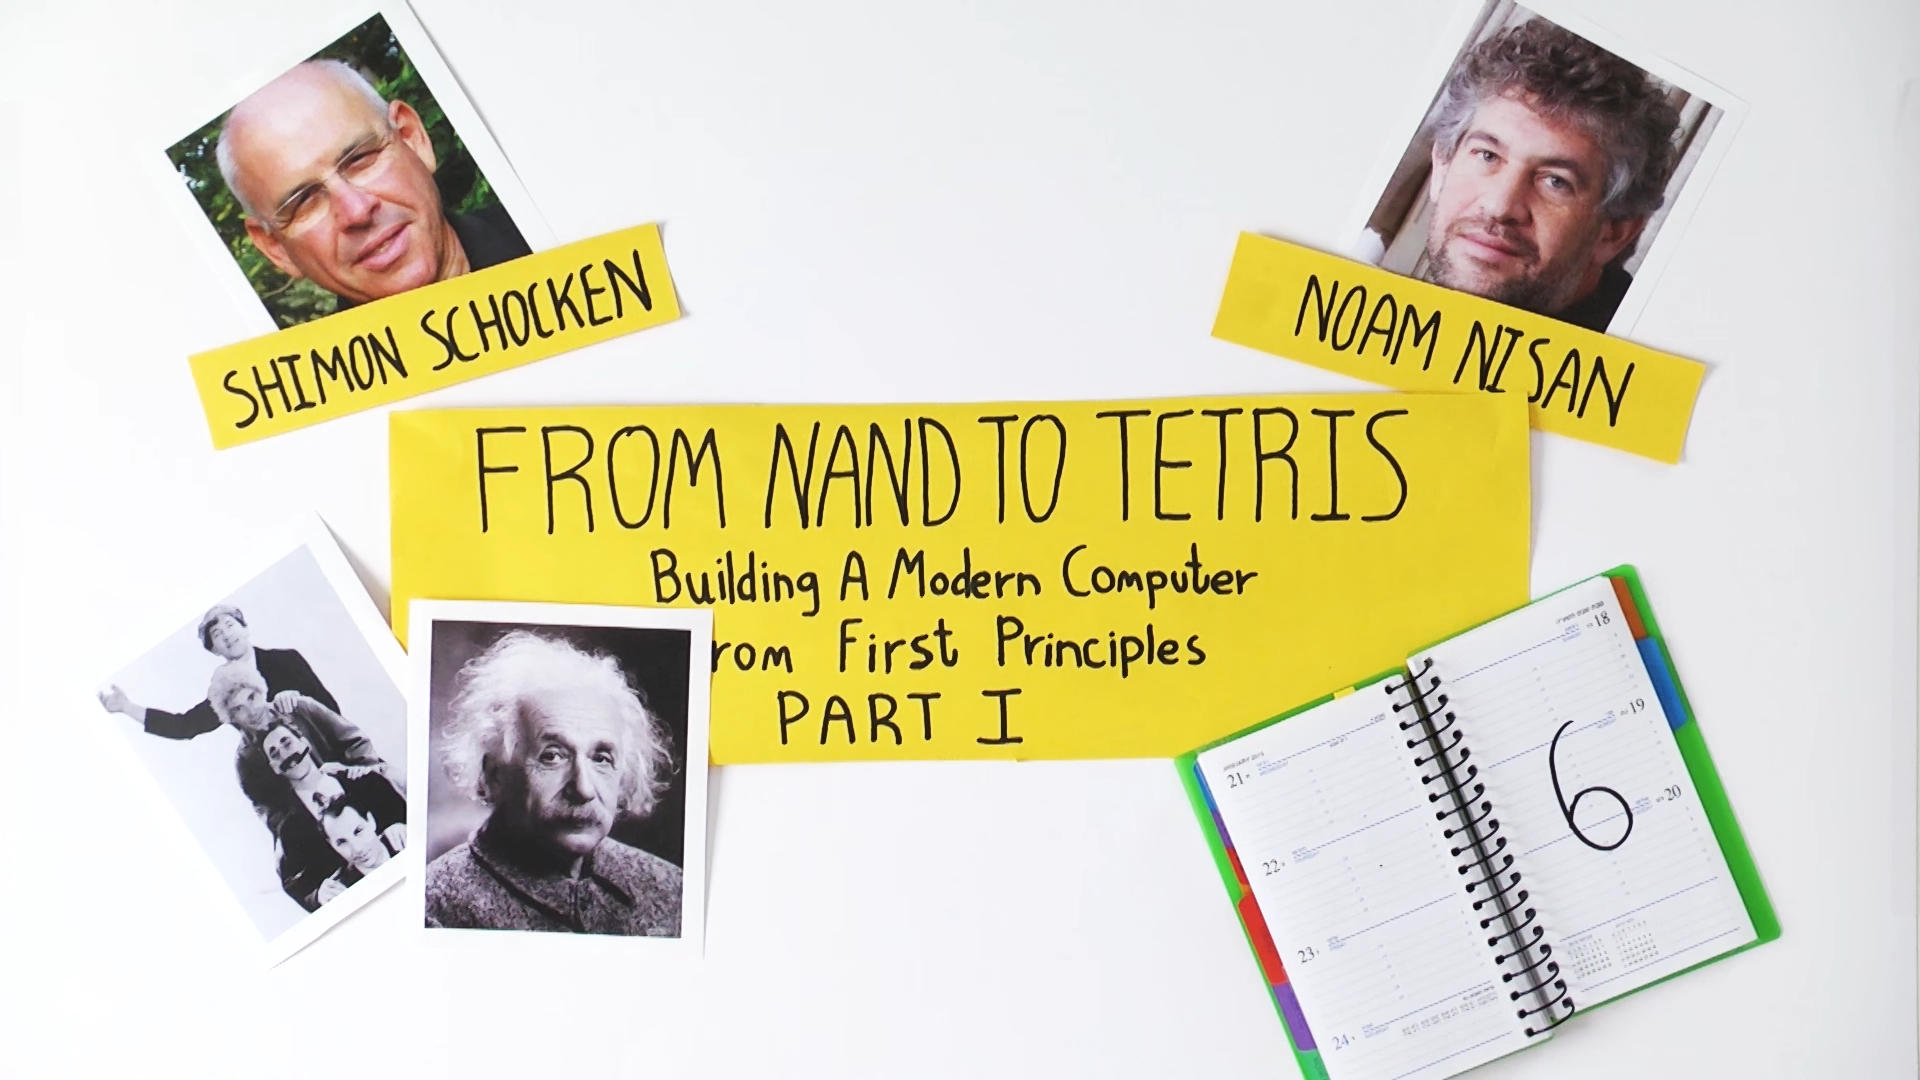 SHIMON SCHOCKEN
NOAM NISAN
FROM NAND TO TETRIS
Building A Modern Computer
rom First Principles
PART I
18
19
20
6
21
22
23
24